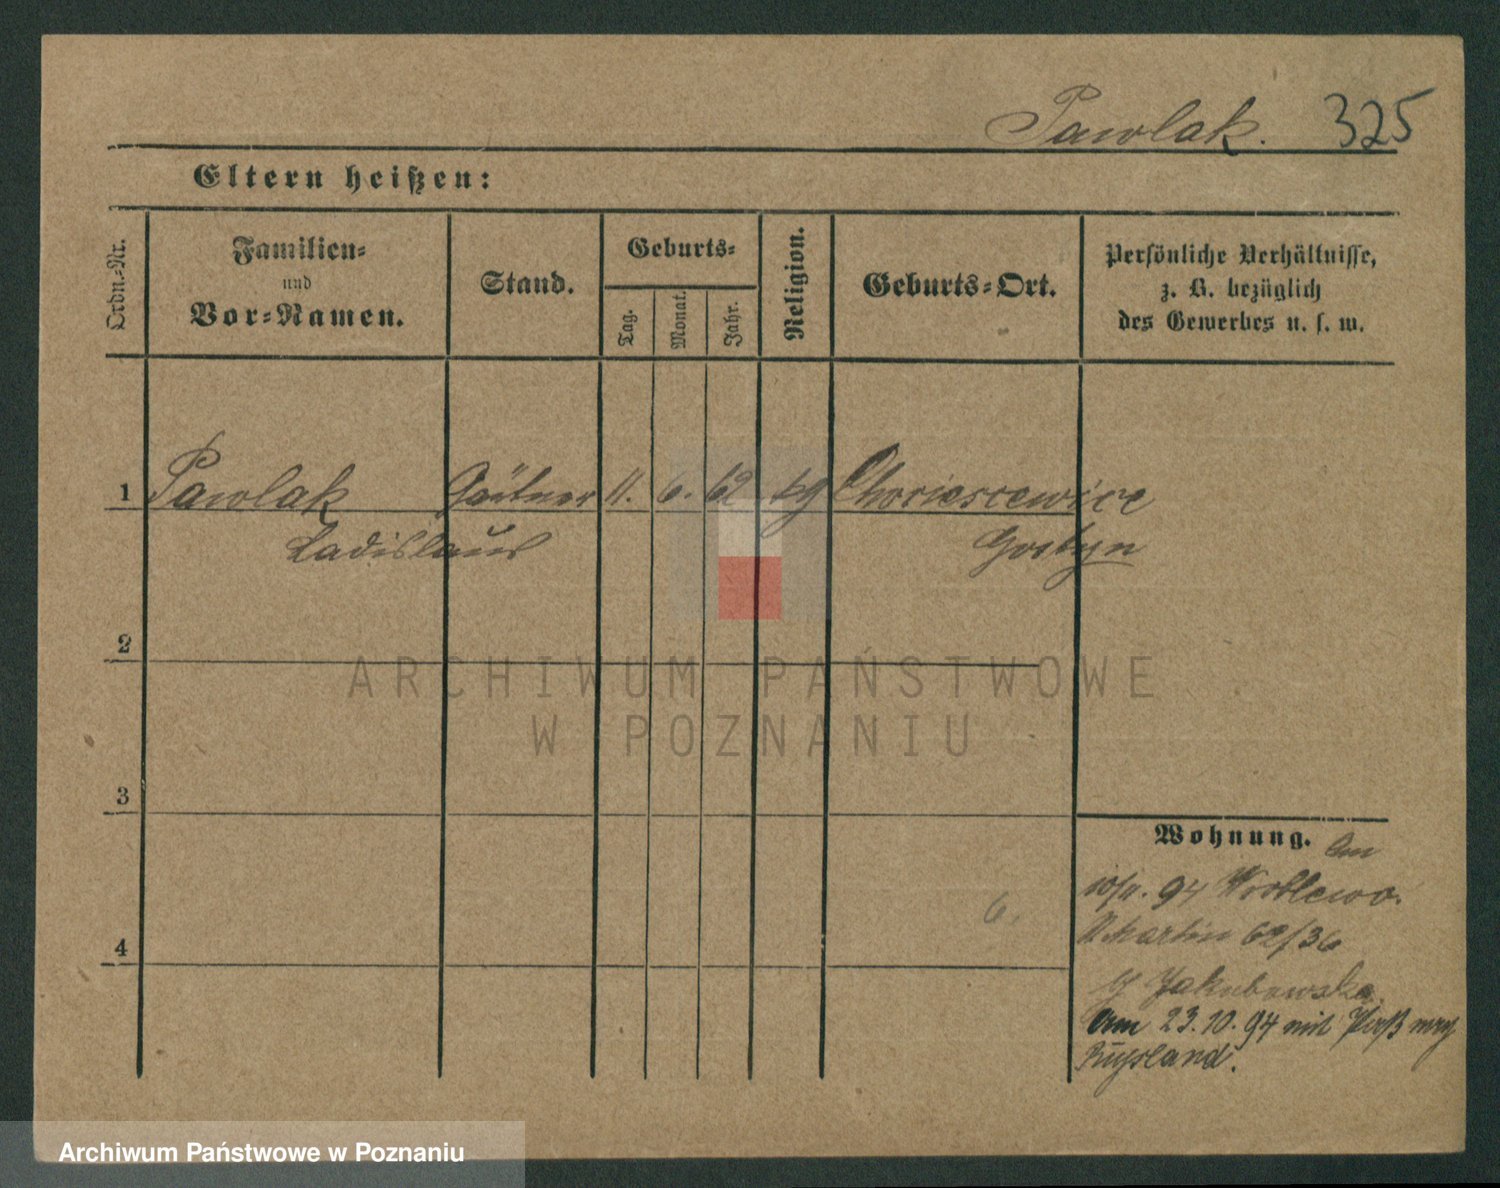 Pawlak. 325
Eltern heißen:
Ordn.-Nr.
Familien-
und
Vor-Namen.
Stand.
Geburts-
Tag.
Monat.
Jahr.
Religion.
Geburts-Ort.
Persönliche Verhältnisse,
z. B. bezüglich
des Gewerbes u. s. w.
1 Pawlak Gärtner 11. 6. 62
Ladislaus Gostyn
2
3
4
Wohnung. Am
94 Wroblewo.
Martin 62/36
Jakubowska
Am 23.10.94 mit Paß
Russland.
6.
ARCHIWUM PAŃSTWOWE
W POZNANIU
Archiwum Państwowe w Poznaniu